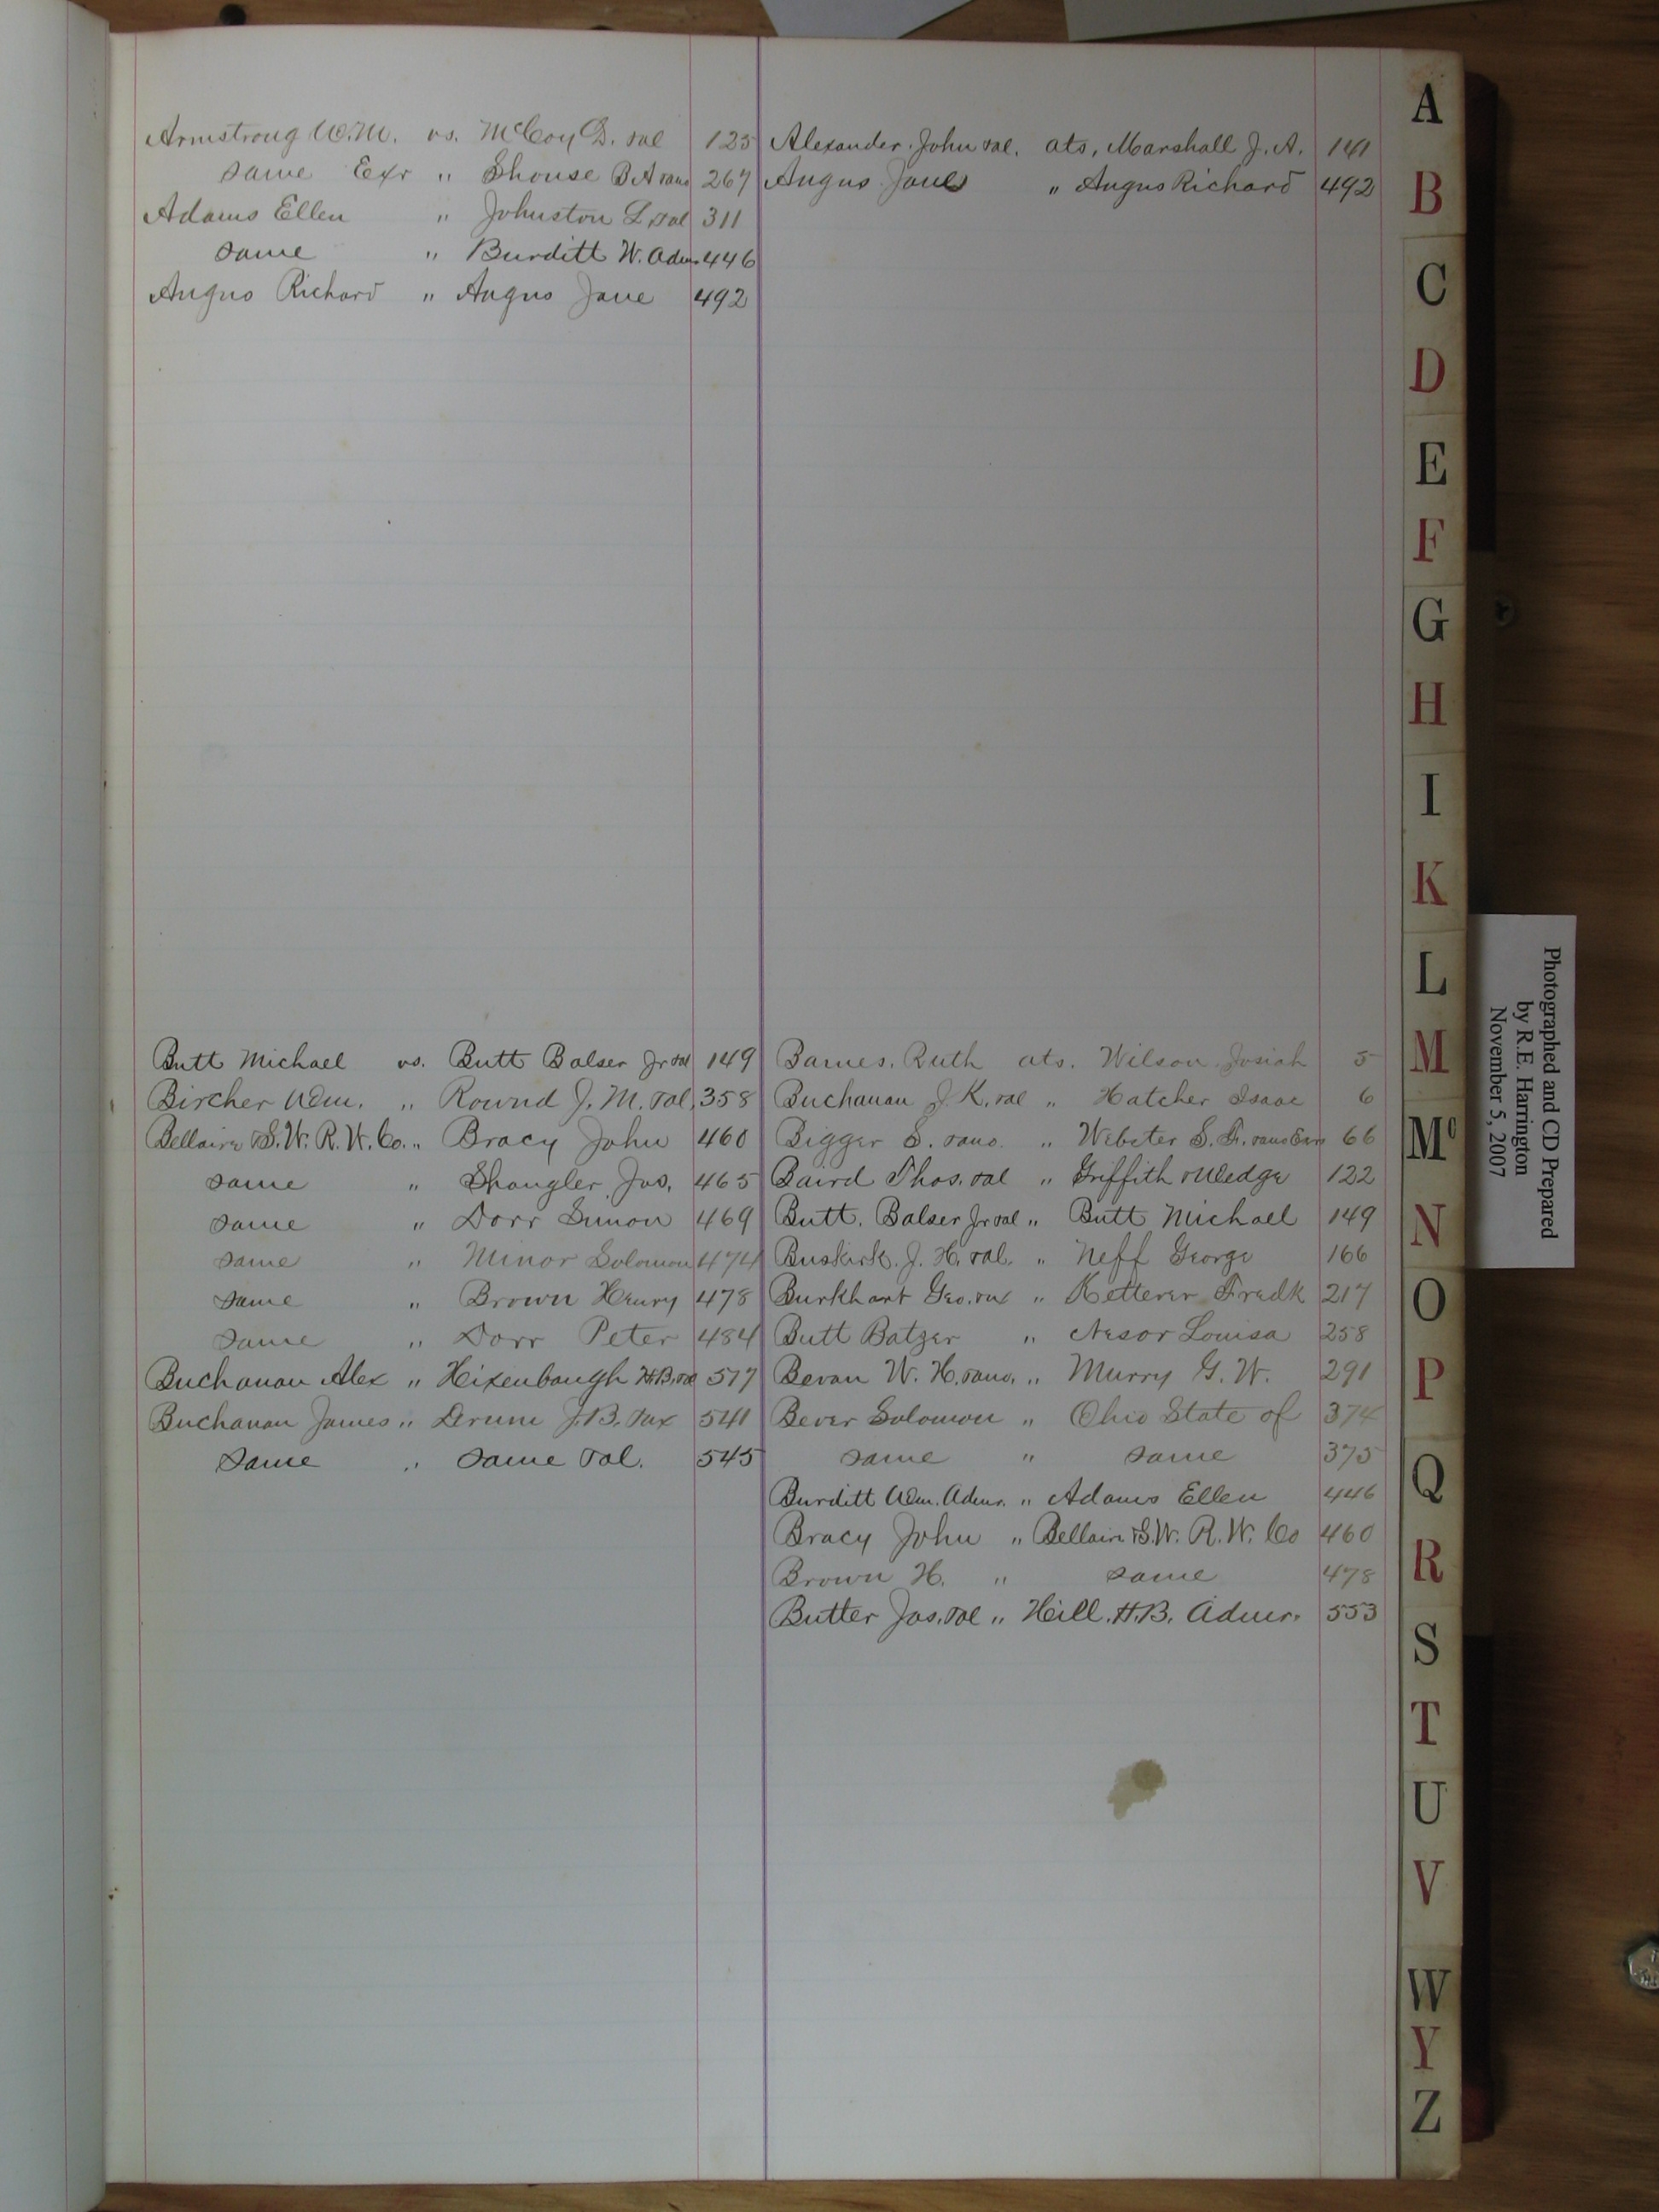 Armstrong W.M. vs. McCoy D. et al 125
same Exr " Shouse B A et ano 267
Adams Ellen " Johnston L. et al 311
same " Burditt W. Admr. 446
Angus Richard " Angus Jane 492
Alexander John et al. ats. Marshall J. A. 141
Angus Jane " Angus Richard 492
Butt Michael vs. Butt Balser Jr et al 149
Bircher Wm. " Round J. M. et al. 358
Bellaire & S. W. R. W. Co. " Bracy John 460
same " Shangler Jos. 465
same " Dorr Simon 469
same " Minor Solomon 474
same " Brown Henry 478
same " Dorr Peter 484
Buchanan Alex " Hixenbaugh H.B. et al 517
Buchanan James " J. B. et ux 541
same " same et al. 545
Barnes, Ruth ats. Wilson Josiah 5
Buchanan J. K. et al " Hatcher Isaac 6
Bigger S. et ano. " Webster S. et ano Exrs 66
Baird Thos. et al " Griffith & Wedge 122
Butt, Balser Jr et al " Butt Michael 149
Buskirk. J. H. et al. " Neff George 166
Burkhart Geo. et ux " Ketterer Fredk 217
Butt Batzer " Nesor Louisa 258
Bevan W. H. et ano. " Murry G. W. 291
Bever Solomon " Ohio State of 374
same " same 375
Burditt Wm. Admr. " Adams Ellen 446
Bracy John " Bellaire & S.W. R. W. Co 460
Brown H. " same 478
Butter Jas. et al " Hill. H.B. Admr. 553
A
B
C
D
E
F
G
H
I
K
L
M
Mc
N
O
P
Q
R
S
T
U
V
W
Y
Z
Photographed and CD Prepared
by R.E. Harrington
November 5, 2007